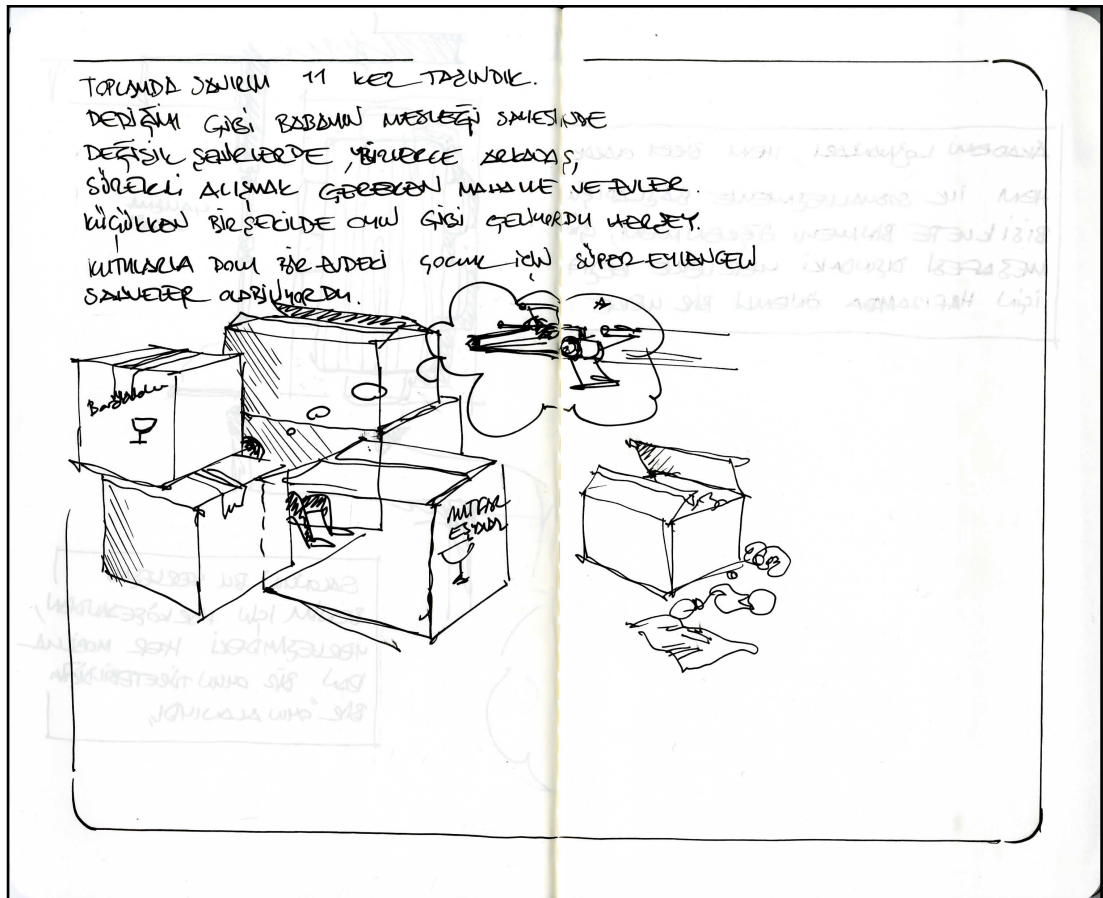 TOPLAMDA SANIRIM 11 KEZ TAŞINDIK.
DEDİĞİM GİBİ BABAMIN MESLEĞİ SAYESİNDE
DEĞİŞİK ŞEHİRLERDE, BİRLERCE ARKADAŞ,
SÜREKLİ ALIŞMAK GEREKEN MAHALLE VE EVLER.
KÜÇÜKKEN BİR ŞEKİLDE OYUN GİBİ GELİYORDU HERŞEY.
KUTULARLA DOLU BİR EVDEKİ ÇOCUK İÇİN SÜPER EĞLENCELİ
SAHNELER OLABİLİYORDU.
Bardaklar
MUTFAK
EŞYALARI